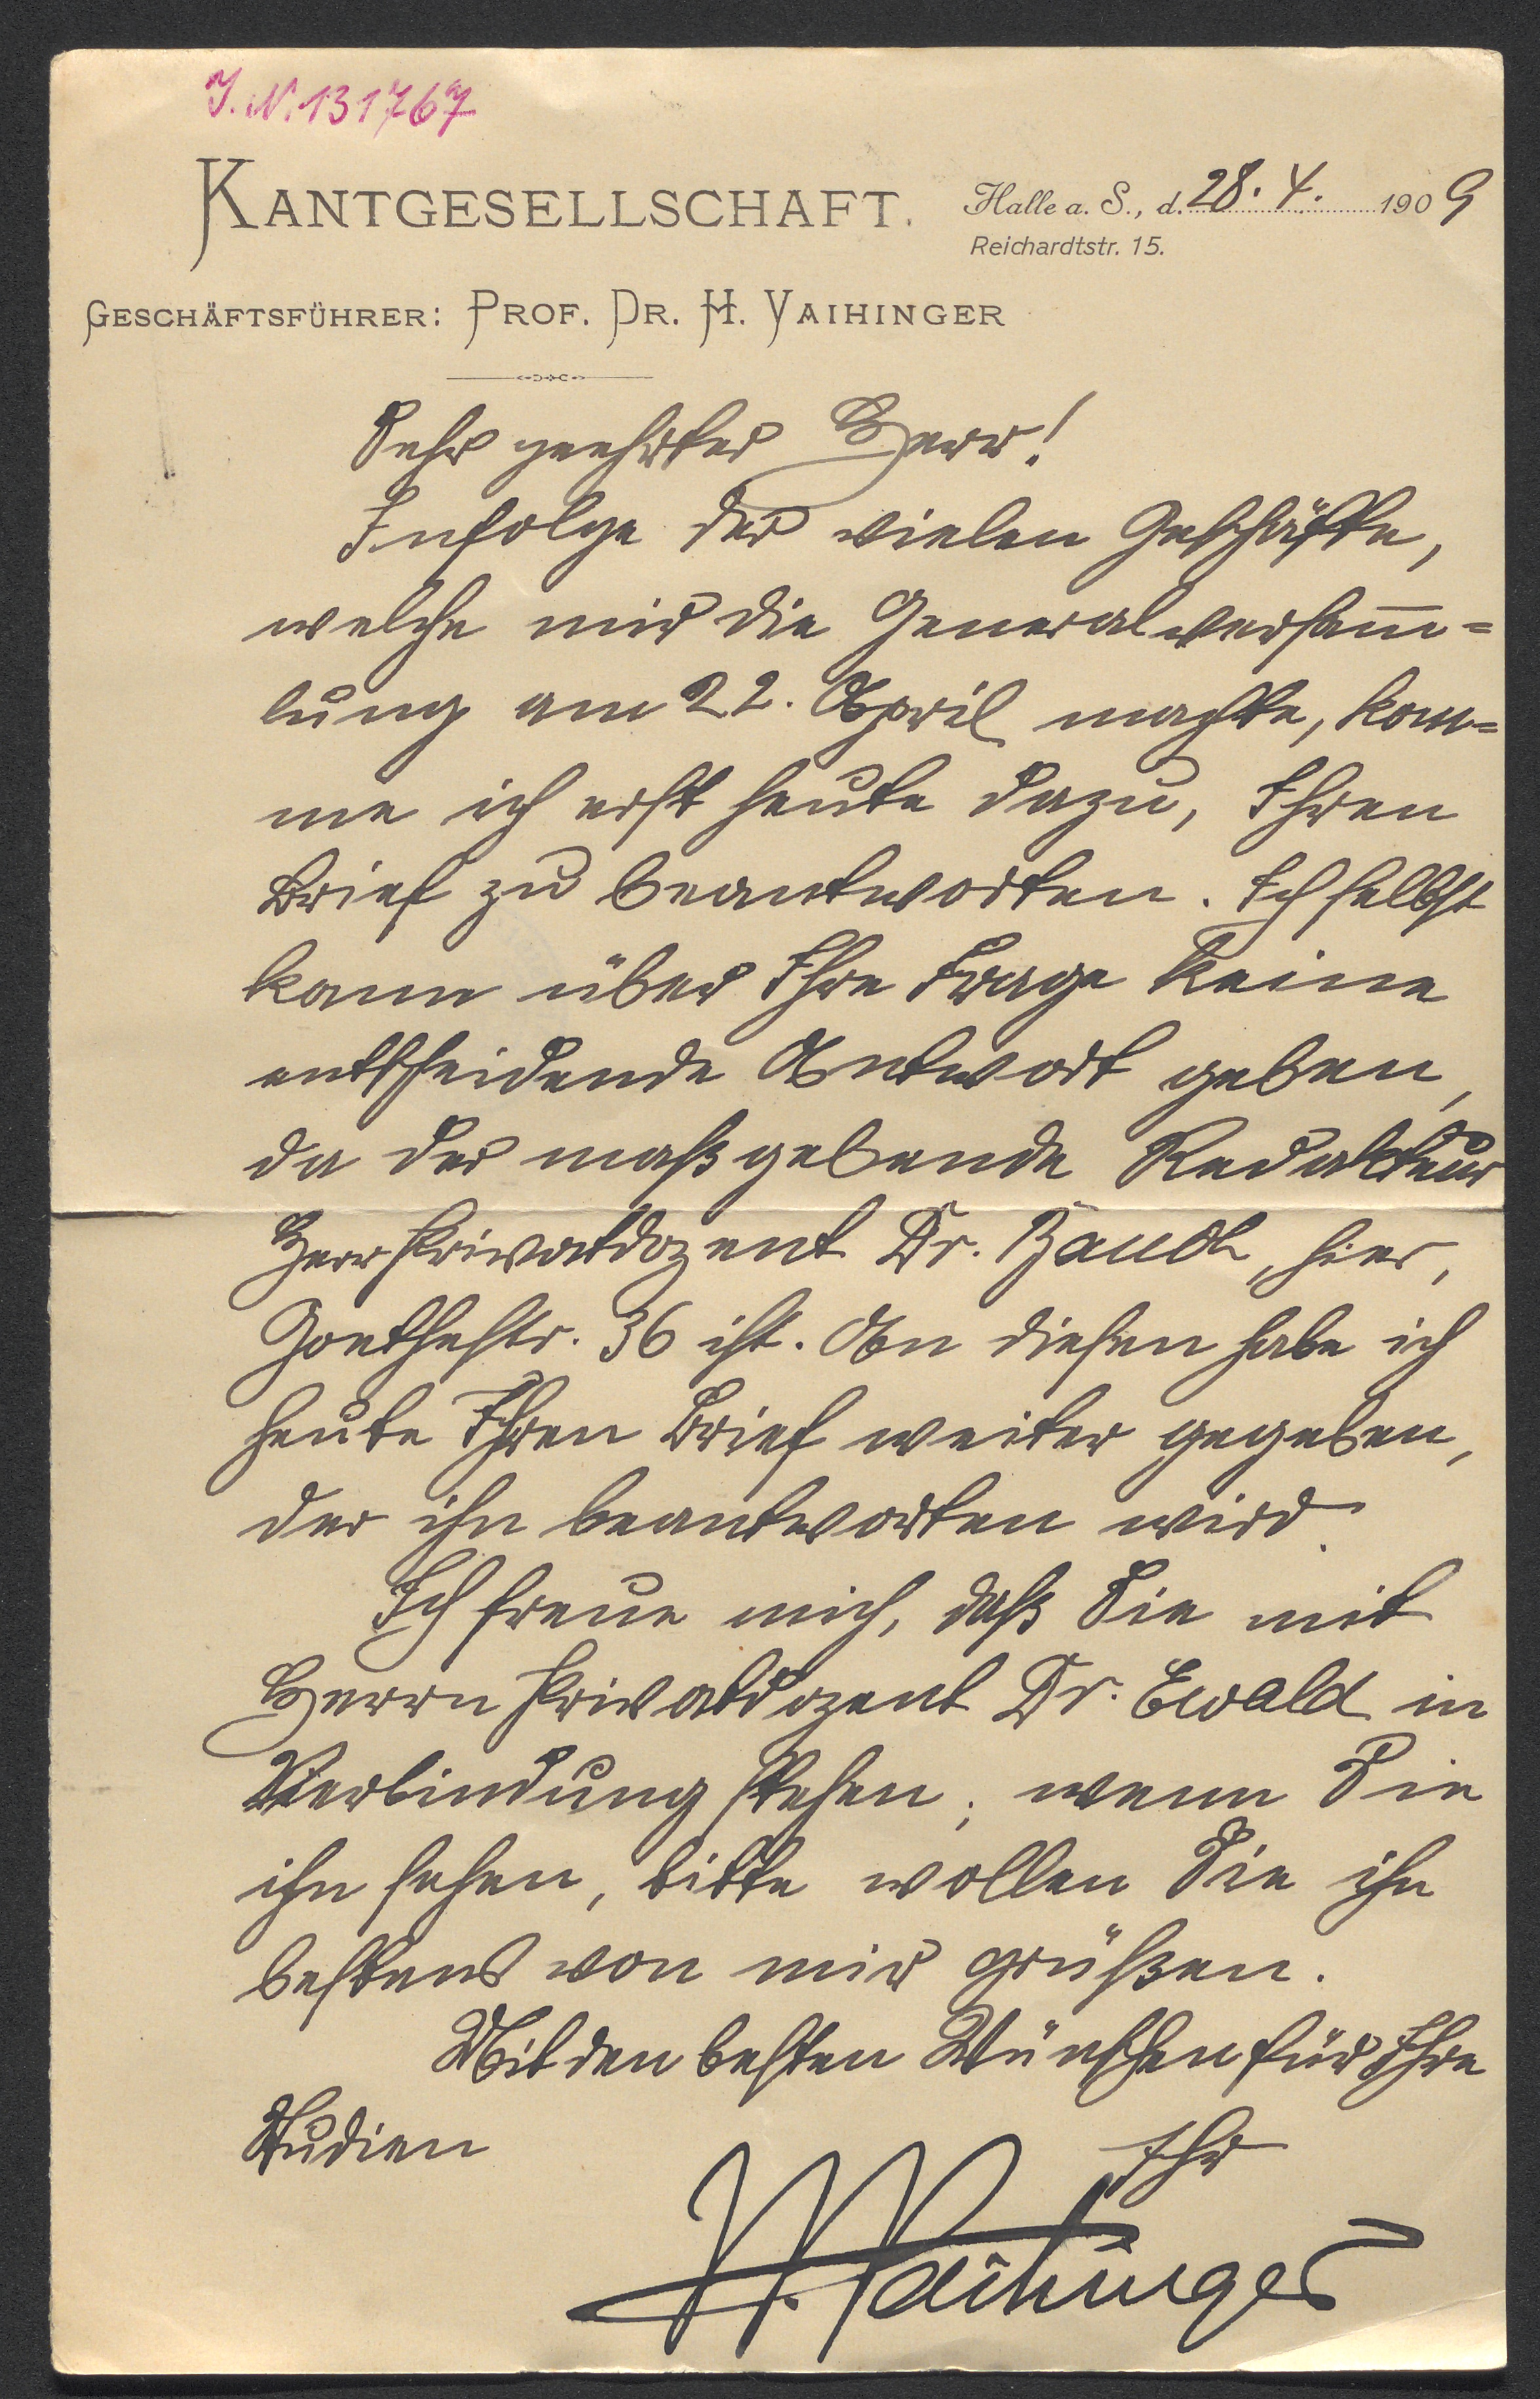 J. N. 131767
KANTGESELLSCHAFT. Halle a. S., d. 28. 4. 1909
Reichardtstr. 15.
GESCHÄFTSFÜHRER: PROF. DR. H. VAIHINGER
Sehr geehrter Herr!
Infolge der vielen Geschäfte,
welche mir die Generalversam̅-
lung am 22. April machte, kom-
me ich erst heute dazu, Ihren
Brief zu beantworten. Ich selbst
kann über Ihre Frage keine
entscheidende Antwort geben,
da der maßgebende Redakteur
Herr Privatdozent Dr. Bauch, hier,
Goethestr. 36 ist. An diesen habe ich
heute Ihren Brief weiter gegeben,
der ihn beantworten wird.
Ich freue mich, daß Sie mit
Herrn Privatdozent Dr. Ewald in
Verbindung stehen; wenn Sie
ihn sehen, bitte wollen Sie ihn
bestens von mir grüßen.
Mit den besten Wünschen für Ihre
Studien
Ihr
H. Vaihinger